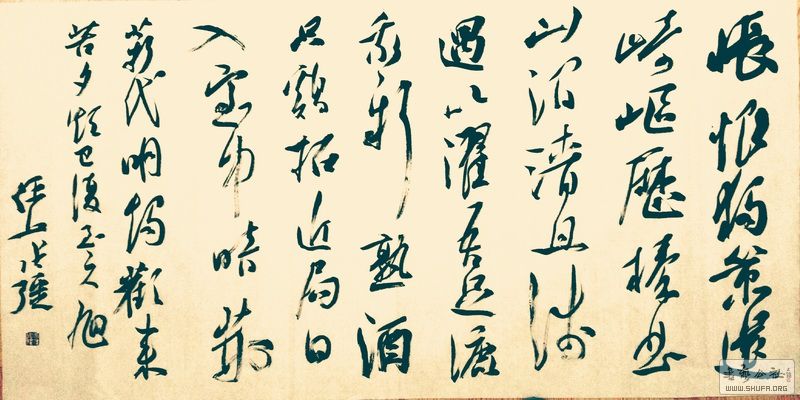 悵恨獨策還
崎嶇歷榛曲
山澗清且淺
遇以濯吾足漉
我新熟酒
只鷄招近局日
入室中暗荆
薪代明燭歡來
苦夕短已復至天旭
WWW.SHUFA.ORG